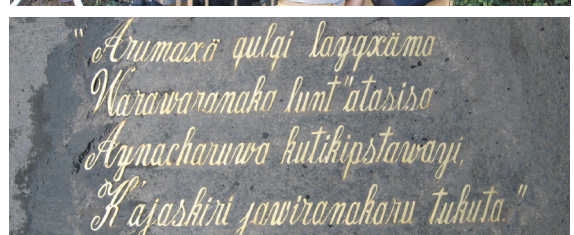 "Arumaxä qulqi layqxäma
Warawaranaka lunt"atasisa
Aynacharuwa kutikipstawayi,
K'ajaskiri jawiranakaru tukuta."